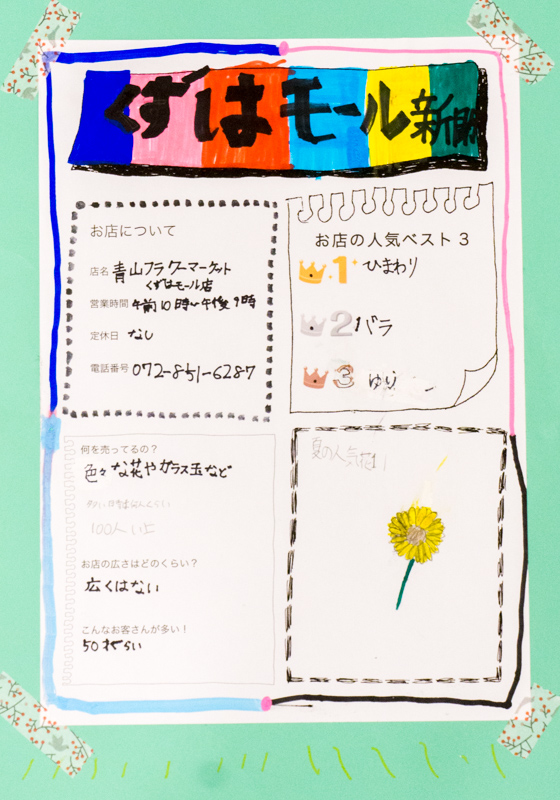 くずはモール新聞
お店について
店名 青山フラワーマーケット
くずはモール店
営業時間 午前10時〜午後9時
定休日 なし
電話番号 072-851-6287
お店の人気ベスト3
1 ひまわり
2 バラ
3 ゆり
何を売ってるの?
色々な花やガラス玉など
100人以上
お店の広さはどのくらい?
広くはない
こんなお客さんが多い!
50才ぐらい
夏の人気花!!